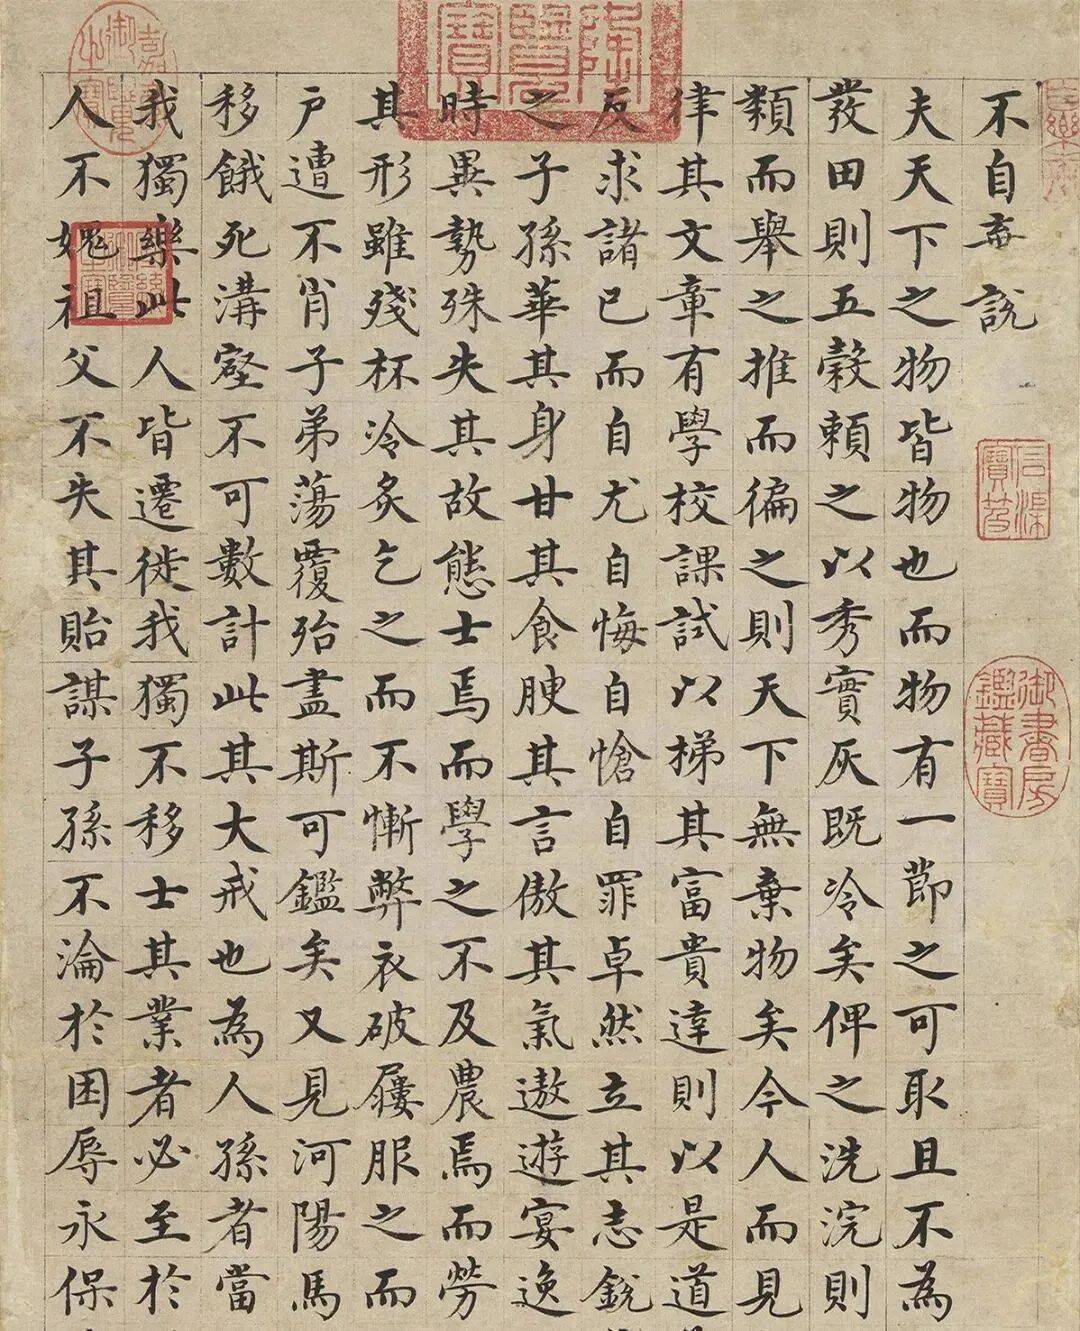 不自棄說
夫天下之物皆物也而物有一節之可取且不為
發田則五穀賴之以秀實灰既冷矣俾之洗浣則
類而舉之推而徧之則天下無棄物矣今人而見
律其文章有學校課試以梯其富貴達則以是道
反求諸己而自尤自悔自愴自罪卓然立其志銳
之子孫華其身甘其食腴其言傲其氣遨遊宴逸
時異勢殊失其故態士焉而學之不及農焉而勞
其形雖殘杯冷炙乞之而不慚弊衣破屨服之而
戶遭不肖子弟蕩覆殆盡斯可鑑矣又見河陽馬
移餓死溝壑不可數計此其大戒也為人孫者當
我獨樂此人皆遷徙我獨不移士其業者必至於
人不媿祖父不失其貽謀子孫不淪於困辱永保
石渠寶笈
御書房鑑藏寶
嘉慶御覽之寶